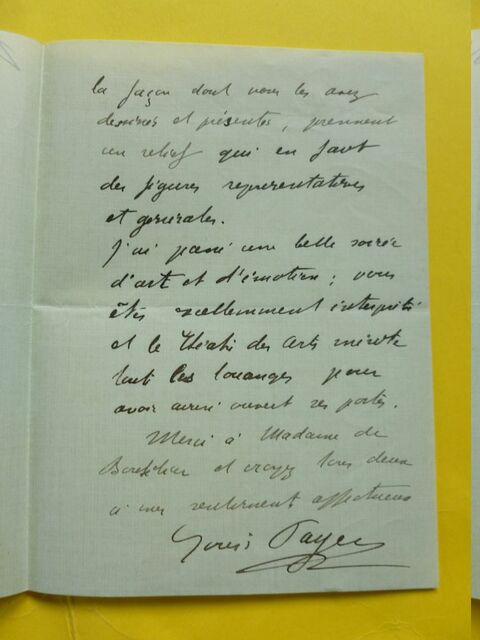 la façon dont vous les avez
dessinés et présentés, prennent
un relief qui en font
des figures représentatives
et générales.
J'ai passé une belle soirée
d'art et d'émotion ; vous
êtes excellemment interprété
et le Théâtre des Arts mérite
tout les louanges pour
avoir ouvert ses portes.
Merci à Madame de
et croyez tous deux
à mes sentiments affectueux
Louis Payen